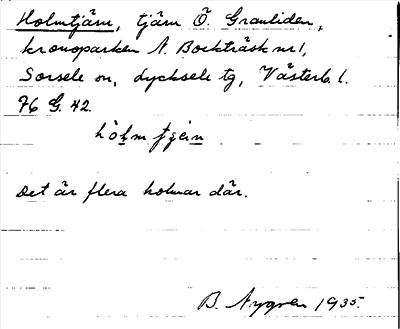 Holmtjärn, tjärn Ö. Granliden,
kronoparken N. Bockträsk nr 1,
Sorsele sn, Lycksele tg, Västerb. l.
76 G. 42.
hòlmtjän
Det är flera holmar där.
B. Nygren 1935.